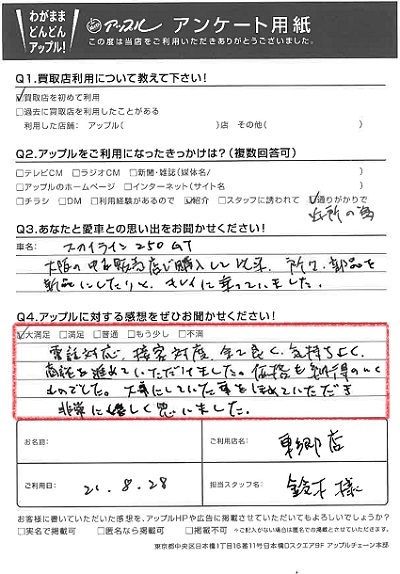 わがまま
どんどん
アップル!
アップル アンケート用紙
この度は当店をご利用いただきありがとうございました。
Q1.買取店利用について教えて下さい!
☑買取店を初めて利用
□過去に買取店を利用したことがある
利用した店舗: アップル( )店 その他( )
Q2.アップルをご利用になったきっかけは?(複数回答可)
□テレビCM □ラジオCM □新聞・雑誌(媒体名/ )
□アップルのホームページ □インターネット(サイト名 )
□チラシ □DM □利用経験があるので ☑紹介 □スタッフに誘われて ☑通りがかりで
近所の為
Q3.あなたと愛車との思い出をお聞かせください!
車名: スカイライン250GT
大阪の中古販売店で購入して以来、所々部品を
新品にしたりと、キレイに乗っていました。
Q4.アップルに対する感想をぜひお聞かせください!
☑大満足 □満足 □普通 □もう少し □不満
電話対応、接客対応、全て良く、気持ちよく
商談を進めていただけました。価格も納得のいく
ものでした。大事にしていた車をほめていただき
非常に嬉しく思いました。
お名前:
ご利用店名: 東郷店
ご利用日: 21.8.28
担当スタッフ名: 鈴木様
お客様に書いていただいた感想を、アップルHPや広告に掲載させていただいてもよろしいでしょうか?
□実名で掲載可 □匿名なら掲載可 □掲載不可 ※ご記入がない場合は匿名での掲載とさせていただきます。
東京都中央区日本橋1丁目16番11号日本橋Dスクエア9F アップルチェーン本部